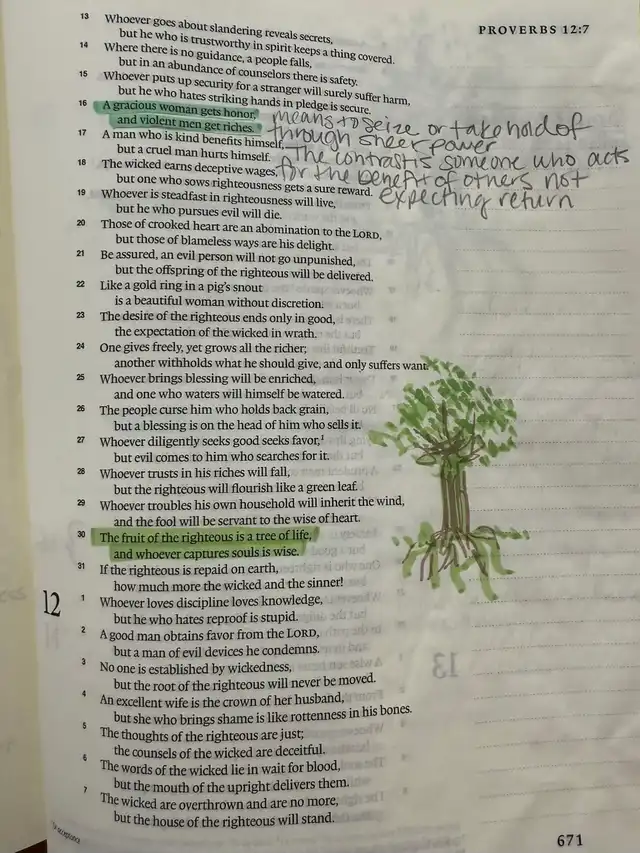 PROVERBS 12:7
13 Whoever goes about slandering reveals secrets,
but he who is trustworthy in spirit keeps a thing covered.
14 Where there is no guidance, a people falls,
but in an abundance of counselors there is safety.
15 Whoever puts up security for a stranger will surely suffer harm,
but he who hates striking hands in pledge is secure.
16 A gracious woman gets honor,
and violent men get riches.
means to seize or take hold of
through sheer power
The contrast is someone who acts
for the benefit of others not
expecting return
17 A man who is kind benefits himself,
but a cruel man hurts himself.
18 The wicked earns deceptive wages,
but one who sows righteousness gets a sure reward.
19 Whoever is steadfast in righteousness will live,
but he who pursues evil will die.
20 Those of crooked heart are an abomination to the LORD,
but those of blameless ways are his delight.
21 Be assured, an evil person will not go unpunished,
but the offspring of the righteous will be delivered.
22 Like a gold ring in a pig's snout
is a beautiful woman without discretion.
23 The desire of the righteous ends only in good,
the expectation of the wicked in wrath.
24 One gives freely, yet grows all the richer;
another withholds what he should give, and only suffers want.
25 Whoever brings blessing will be enriched,
and one who waters will himself be watered.
26 The people curse him who holds back grain,
but a blessing is on the head of him who sells it.
27 Whoever diligently seeks good seeks favor,¹
but evil comes to him who searches for it.
28 Whoever trusts in his riches will fall,
but the righteous will flourish like a green leaf.
29 Whoever troubles his own household will inherit the wind,
and the fool will be servant to the wise of heart.
30 The fruit of the righteous is a tree of life,
and whoever captures souls is wise.
31 If the righteous is repaid on earth,
how much more the wicked and the sinner!
12
1 Whoever loves discipline loves knowledge,
but he who hates reproof is stupid.
2 A good man obtains favor from the LORD,
but a man of evil devices he condemns.
3 No one is established by wickedness,
but the root of the righteous will never be moved.
4 An excellent wife is the crown of her husband,
but she who brings shame is like rottenness in his bones.
5 The thoughts of the righteous are just;
the counsels of the wicked are deceitful.
6 The words of the wicked lie in wait for blood,
but the mouth of the upright delivers them.
7 The wicked are overthrown and are no more,
but the house of the righteous will stand.
¹ Or acceptance
671